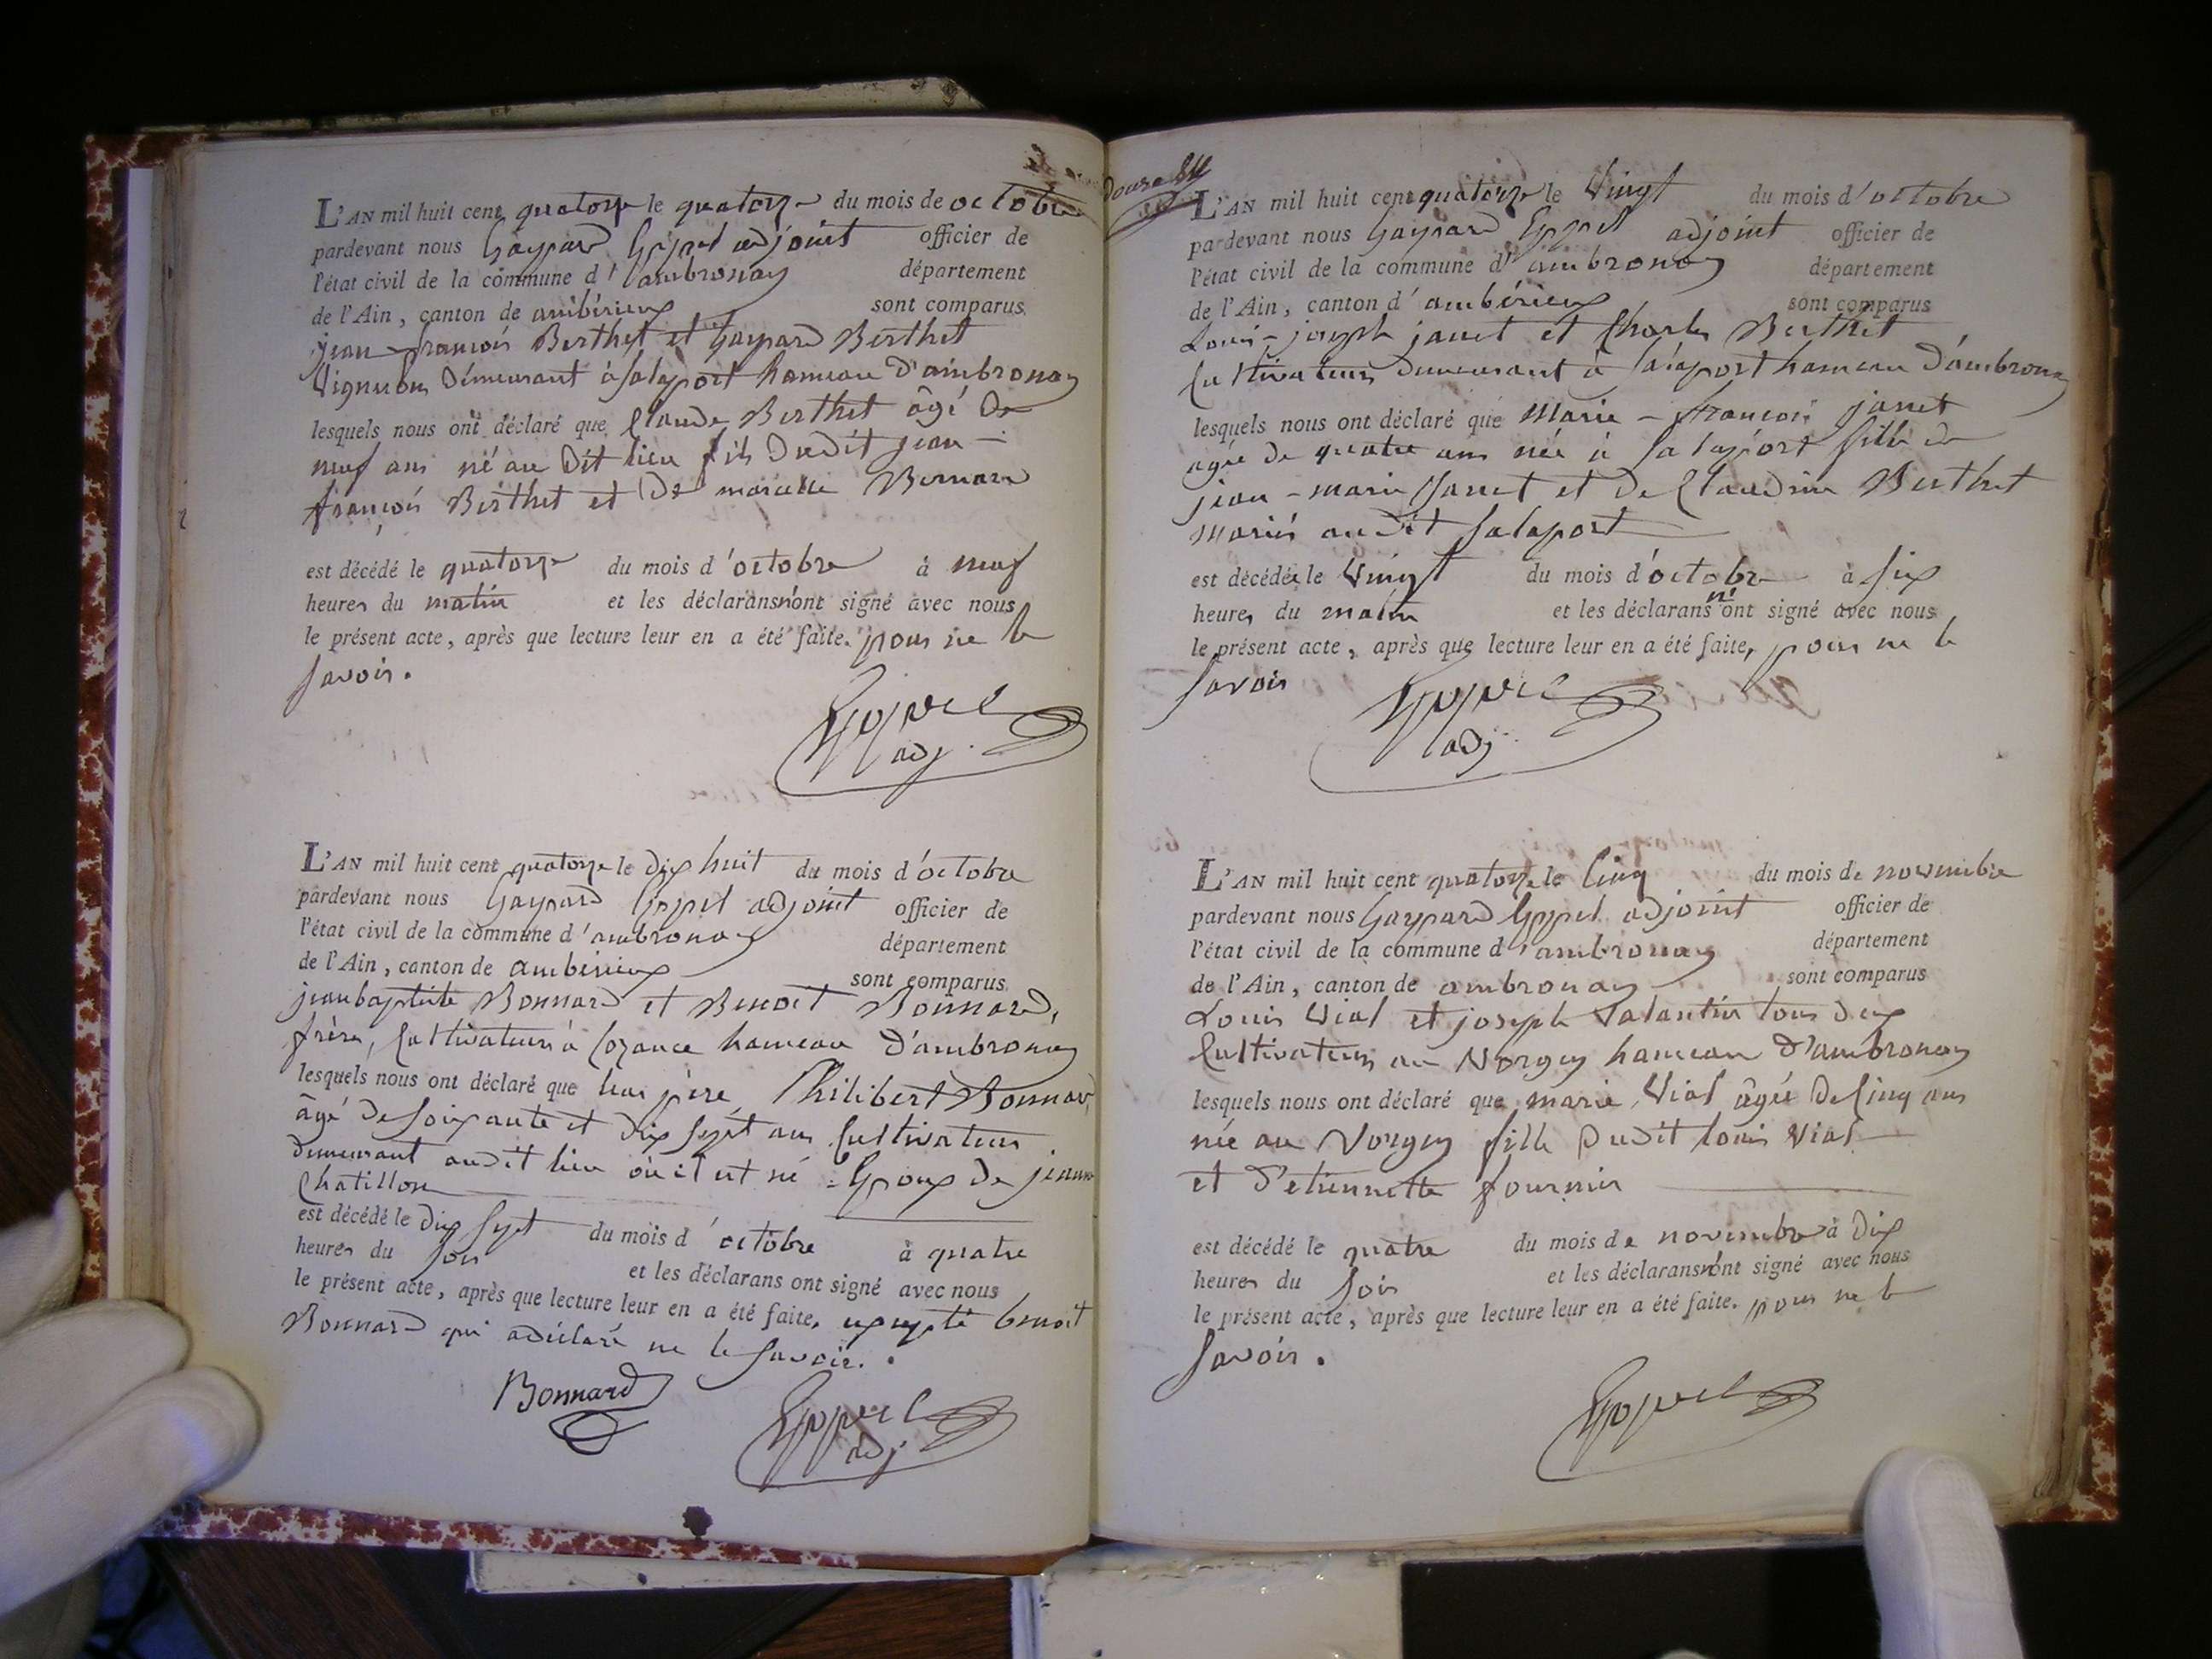 L'AN mil huit cent quatorze le quatorze du mois de octobre
pardevant nous Gaspard Goppet adjoint officier de
l'état civil de la commune d'ambronay département
de l'Ain, canton de ambérieux sont comparus
jean françois Berthet et Gaspard Berthet
Vignerons demeurant à salaport hameau d'ambronay
lesquels nous ont déclaré que Claude Berthet âgé de
neuf ans né au dit lieu fils dudit jean-
françois Berthet et de Bernard
est décédé le quatorze du mois d'octobre à neuf
heures du matin et les déclarans n'ont signé avec nous
le présent acte, après que lecture leur en a été faite. pour ne le
savoir.
adj.
L'AN mil huit cent quatorze le dix huit du mois d'octobre
pardevant nous Gaspard Goppet adjoint officier de
l'état civil de la commune d'ambronay département
de l'Ain, canton de ambérieux sont comparus
jean baptiste Bonnard et Benoit Bonnard,
frères, Cultivateurs à Cozance hameau d'ambronay
lesquels nous ont déclaré que leur père Philibert Bonnard
âgé de soixante et dix sept ans Cultivateur
demeurant audit lieu où il est né = Epoux de jeanne
Chatillon
est décédé le dix sept du mois d'octobre à quatre
heures du soir et les déclarans ont signé avec nous
le présent acte, après que lecture leur en a été faite. excepté benoit
Bonnard qui a déclaré ne le savoir.
Bonnard
adj
L'AN mil huit cent quatorze le Vingt du mois d'octobre
pardevant nous Gaspard Goppet adjoint officier de
l'état civil de la commune d'ambronay département
de l'Ain, canton d'ambérieux sont comparus
Louis-joseph janet et Charles Berthet
Cultivateurs demeurant à salaport hameau d'ambronay
lesquels nous ont déclaré que Marie-françoise janet
agée de quatre ans née à salaport fille de
jean-marie Janet et de Claudine Berthet
mariés audit salaport
est décédée le Vingt du mois d'octobre à six
heures du matin et les déclarans n'ont signé avec nous
le présent acte, après que lecture leur en a été faite, pour ne le
savoir
adj
L'AN mil huit cent quatorze le Cinq du mois de novembre
pardevant nous Gaspard Goppet adjoint officier de
l'état civil de la commune d'ambronay département
de l'Ain, canton de ambronay sont comparus
Louis Vial et joseph Valantin tous deux
Cultivateurs au Vorgey hameau d'ambronay
lesquels nous ont déclaré que marie Vial âgée de Cinq ans
née au Vorgey fille dudit louis Vial
et d'etiennette fournier
est décédé le quatre du mois de novembre à dix
heures du soir et les déclarans n'ont signé avec nous
le présent acte, après que lecture leur en a été faite. pour ne le
savoir.